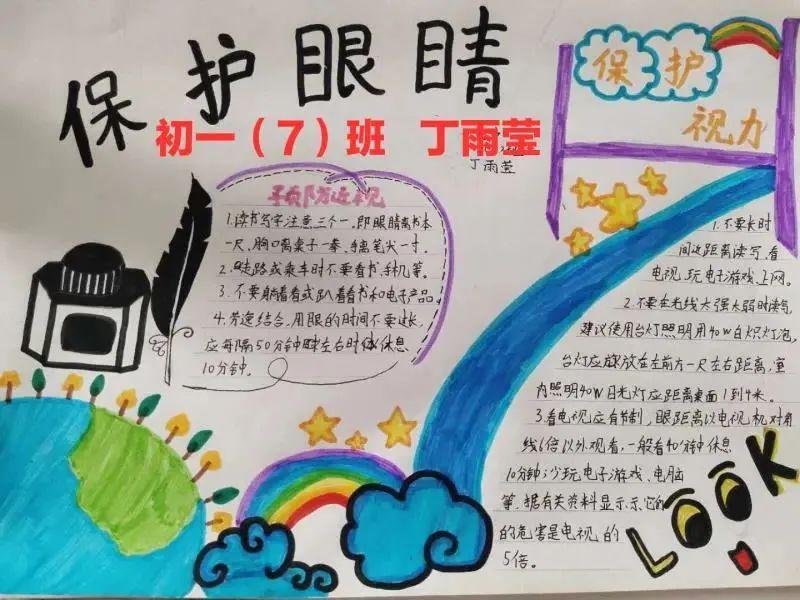 保护眼睛
初一（7）班 丁雨莹
丁雨莹
保护
视力
预防近视
1.读书写字注意三个一,即眼睛离书本
一尺,胸口离桌子一拳,手离笔尖一寸.
2.走路或乘车时不要看书,手机等。
3.不要躺着看或趴着看书和电子产品.
4.劳逸结合,用眼的时间不要过长,
应每隔50分钟左右时休息
10分钟。
1.不要长时
间近距离读写,看
电视,玩电子游戏,上网。
2.不要在光线太强太弱时读写
建议使用台灯照明用40W白炽灯泡,
台灯应放在左前方一尺左右距离,室
内照明40W日光灯应距离桌面1到4米.
3.看电视应有节制,眼距离以电视机对角
线6倍以外观看,一般看40分钟休息
10分钟;少玩电子游戏、电脑
等.据有关资料显示示它的
的危害是电视的
5倍。
LOOK